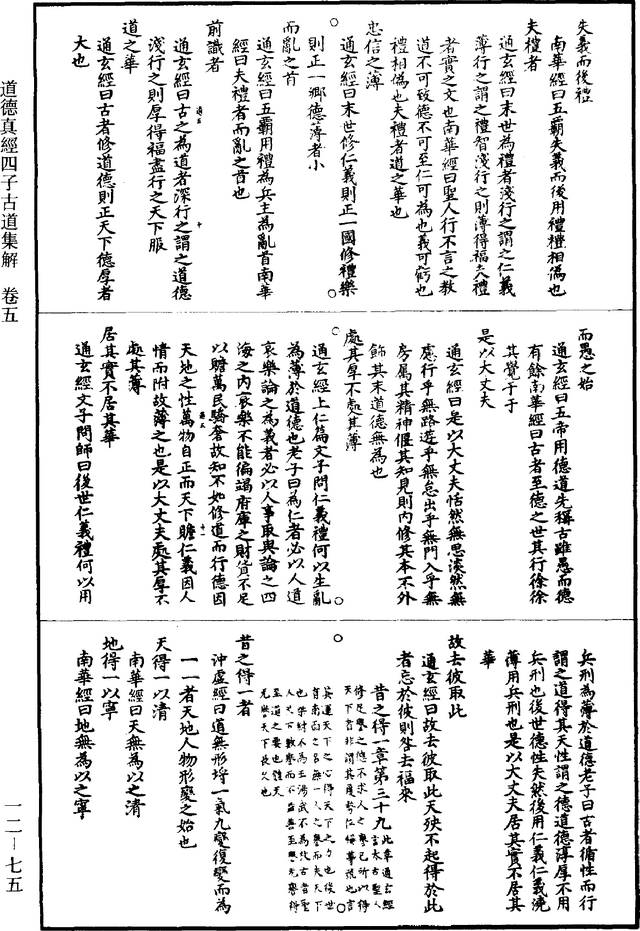 道德真經四子古道集解　卷五
一二－七五
失義而後禮
南華經曰五霸失義而後用禮禮相偽也
夫禮者
通玄經曰末世為禮者淺行之謂之仁義
薄行之謂之禮智淺行之則薄得福夫禮
者實之文也南華經曰聖人行不言之教
道不可致德不可至仁可為也義可虧也
禮相偽也夫禮者道之華也
忠信之薄
通玄經曰末世修仁義則正一國修禮樂
則正一鄉德薄者小
而亂之首
通玄經曰五霸用禮為兵主為亂首南華
經曰夫禮者而亂之首也
前識者
通玄經曰古之為道者深行之謂之道德
淺行之則厚得福盡行之天下服
道之華
通玄經曰古者修道德則正天下德厚者
大也
而愚之始
通玄經曰五帝用德道先稱古雖愚而德
有餘南華經曰古者至德之世其行徐徐
其覺于于
是以大丈夫
通玄經曰是以大丈夫恬然無思淡然無
慮行乎無路遊乎無怠出乎無門入乎無
房屬其精神偃其知見則內修其本不外
飾其末道德無為也
處其厚不處其薄
通玄經上仁篇文子問仁義禮何以生亂
為薄於道德也老子曰為仁者必以人道
哀樂論之為義者必以人事取與論之四
海之內哀樂不能徧竭府庫之財貨不足
以贍萬民驕奢故知不如修道而行德因
天地之性萬物自正而天下贍仁義因人
情而附故薄之也是以大丈夫處其厚不
處其薄
居其實不居其華
通玄經文子問師曰後世仁義禮何以用
兵刑為薄於道德老子曰古者循性而行
謂之道得其天性謂之德道德淳厚不用
兵刑也後世德性失然後用仁義仁義澆
薄用兵刑也是以大丈夫居其實不居其
華
故去彼取此
通玄經曰故去彼取此天殃不起得於此
者忘於彼則咎去福來
昔之得一章第三十九
昔之得一者
沖虛經曰道無形埒一氣九變復變而為
一一者天地人物形變之始也
天得一以清
南華經曰天無為以之清
地得一以寧
南華經曰地無為以之寧